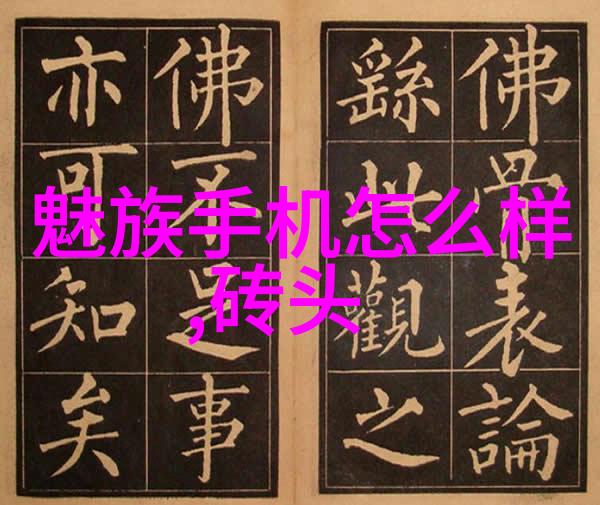 魅族手机怎么样
,砖头
佛骨表論
繇此觀之
佛不是事
亦可知矣